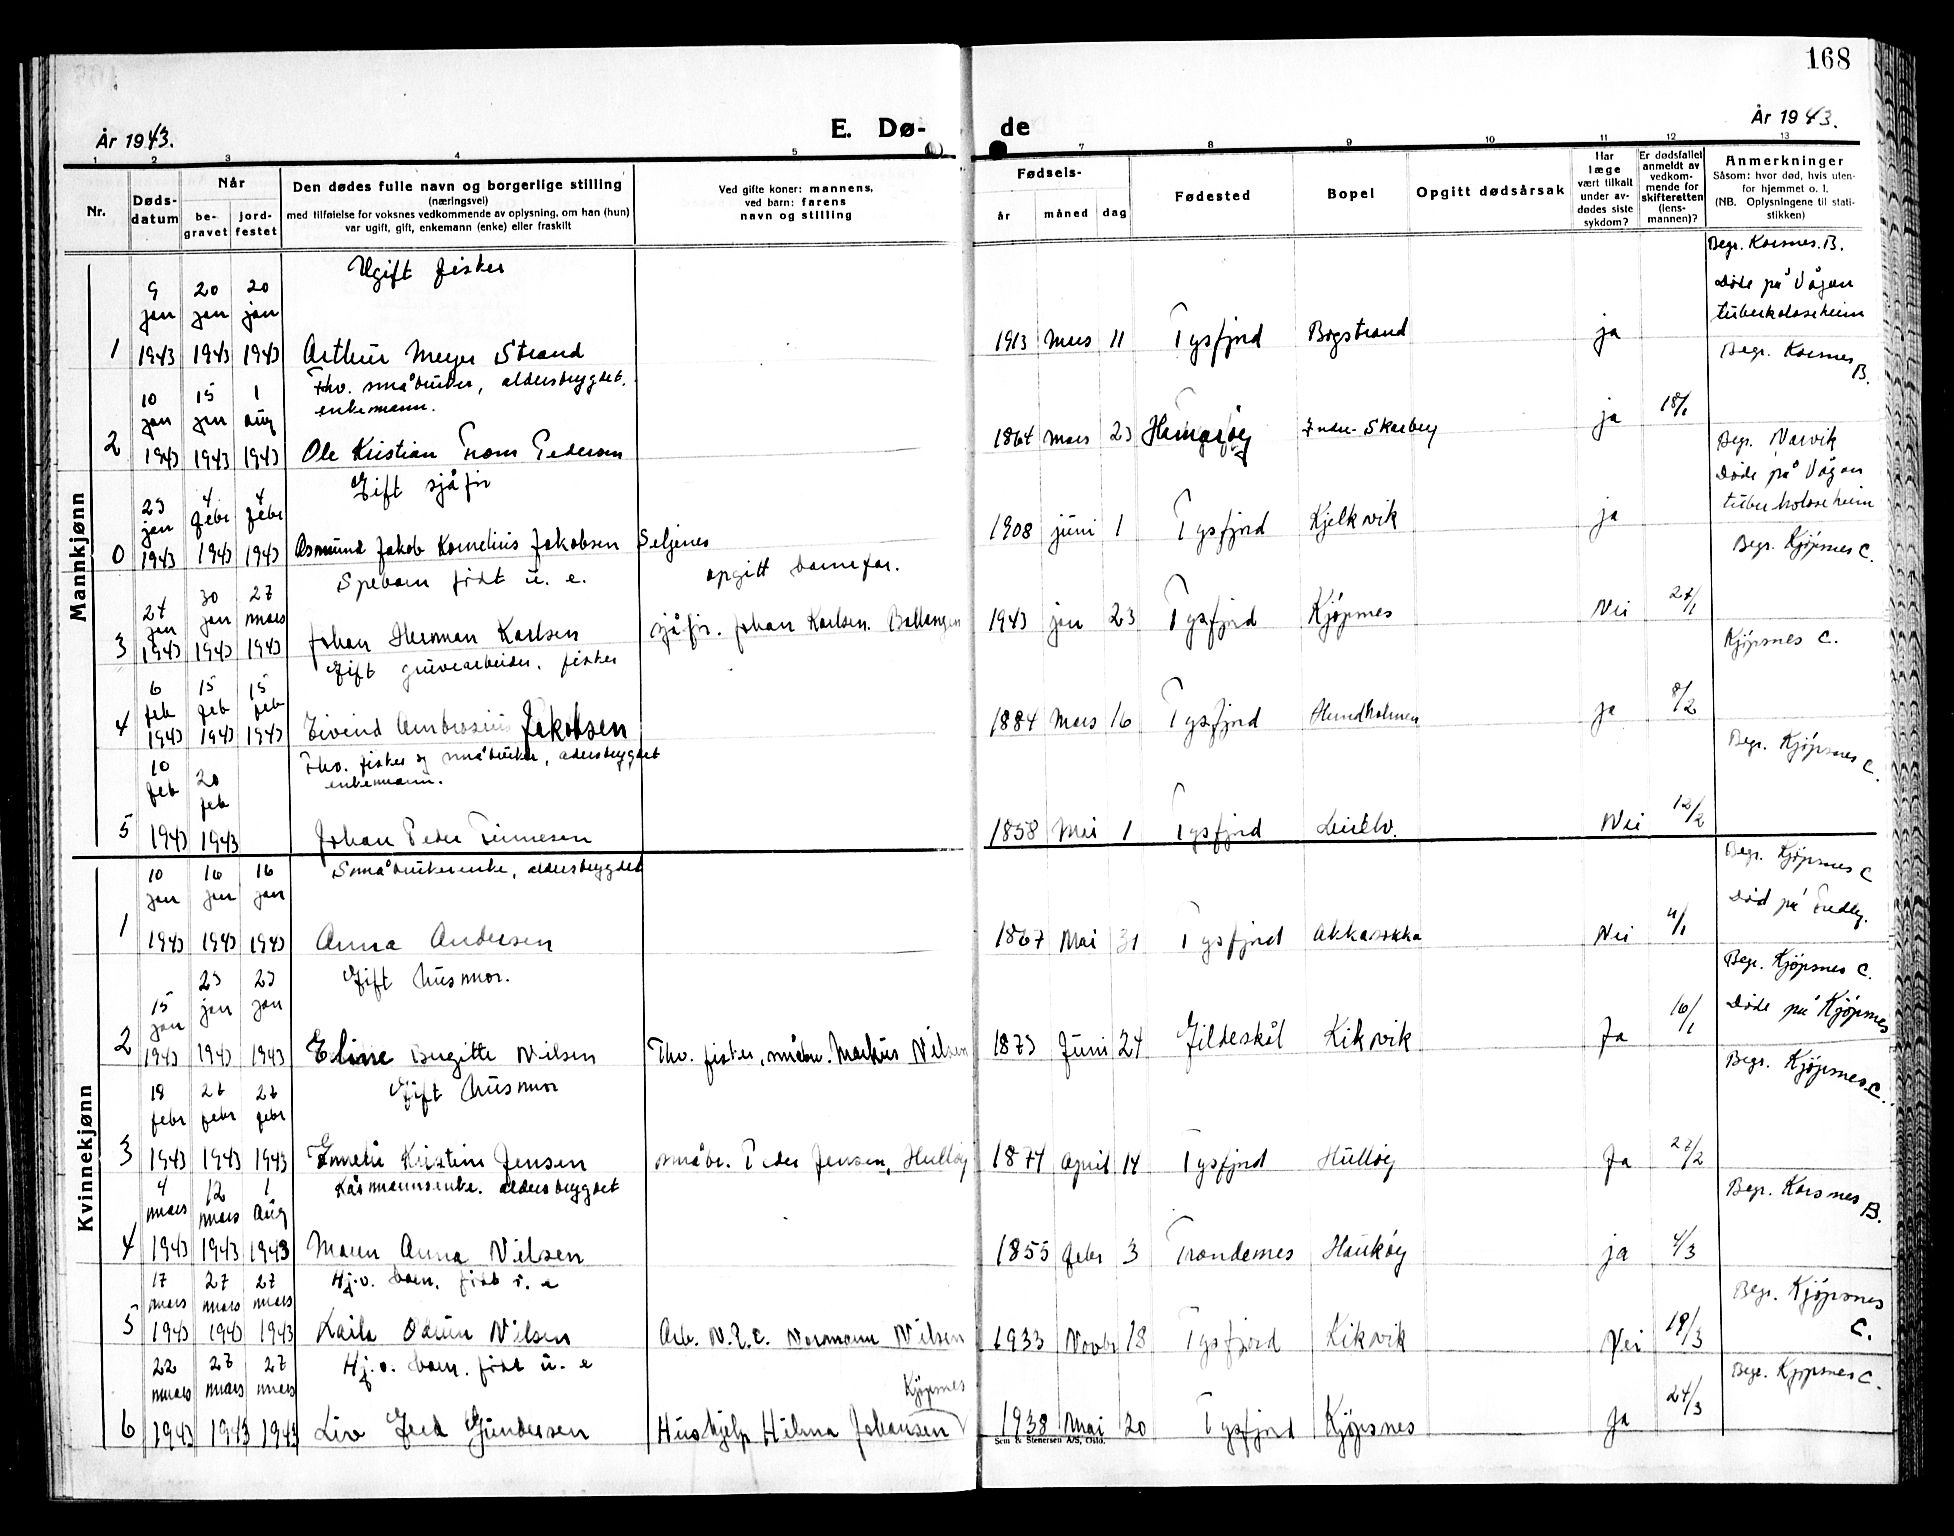 168
År 1943.
E. Dø-
de
År 1943.
1 2 3 4 5 7 8 9 10 11 12 13
Nr.
Døds-
datum
Når
be-
gravet
jord-
festet
Den dødes fulle navn og borgerlige stilling
(næringsvei)
med tilføielse for voksnes vedkommende av oplysning, om han (hun)
var ugift, gift, enkemann (enke) eller fraskilt
Ved gifte koner: mannens,
ved barn: farens
navn og stilling
Fødsels-
år
måned
dag
Fødested
Bopel
Opgitt dødsårsak
Har
læge
vært tilkalt
under av-
dødes siste
sykdom?
Er dødsfallet
anmeldt av
vedkom-
mende for
skifteretten
(lens-
mannen)?
Anmerkninger
Såsom: hvor død, hvis uten-
for hjemmet o. l.
(NB. Oplysningene til stati-
stikken)
Mannkjønn
Ugift fisker
Begr. Korsnes. B.
9 20 20
jan jan jan
Døde på Vågan
tuberkoloseheim
1 1943 1943 1943 Arthur Meyer Strand 1913 Mars 11 Tysfjord Bogstrand ja
Fhv. småbruker, aldersbygdet.
enkemann.
Begr. Korsnes
B.
10 15 1
jan jan aug
18/1
2 1943 1943 1943 Ole Kristian Trom Pedersen 1864 Mars 23 Hamarøy Indre-Skarberg ja
Gift sjåfør
Begr. Narvik
Døde på Vågan
tuberkoloseheim
23 4 4
jan febr febr
0 1943 1943 1943 Asmund Jakob Kornelius Jakobsen Seljenes 1908 juni 1 Tysfjord Kjelkvik ja
Spebarn født u. e.
opgitt barnefar.
Begr. Kjøpsnes C.
24 30 27
jan jan mars
27/1
3 1943 1943 1943 Johan Herman Karlsen sjåfør. Johan Karlsen. Ballangen 1943 jan 23 Tysfjord Kjøpsnes Nei
Gift gruvearbeider. fisker
Kjøpsnes C.
6 15 15
feb feb feb
8/2
4 1943 1943 1943 Eivind Ambrosius Jakobsen 1884 Mars 16 Tysfjord Hundholmen ja
Fhv. fisker og småbruker, aldersbygdet
enkemann.
Begr. Kjøpsnes C.
10 20
feb feb
12/2
5 1943 1943 Johan Peder Finnesen 1858 Mai 1 Tysfjord Leirelv. Nei
Kvinnekjønn
Småbrukerenke, aldersbygdet
Begr. Kjøpsnes C
Død på Fredly.
10 16 16
jan jan jan
11/1
1 1943 1943 1943 Anna Andersen 1867 Mai 31 Tysfjord Akkasokka Nei
Gift husmor.
Begr. Kjøpsnes C.
Døde på Kjøpsnes
15 23 23
jan jan jan
16/1
2 1943 1943 1943 Eline Birgitte Nilsen Fhv. fisker, småbr. Markus Nilsen 1873 Juni 24 Gildeskål Kikvik Ja
Gift husmor
Begr. Kjøpsnes C.
18 26 26
febr febr febr
27/2
3 1943 1943 1943 Emelie Kristine Jensen småbr. Peder Jensen, Hulløy 1874 April 14 Tysfjord Hulløy Ja
Kårmannsenke. aldersbygdet
Begr. Korsnes B.
4 12 1
mars mars Aug
4/3
4 1943 1943 1943 Maren Anna Nilsen 1855 Febr 3 Trondenes Haukøy ja
Hj.v. barn. født i. e
Begr. Kjøpsnes
C.
17 27 27
mars mars mars
19/3
5 1943 1943 1943 Laila Odrun Nilsen Arb. N.P.C. Normann Nilsen 1933 Novbr 18 Tysfjord Kikvik Nei
Hj.v. barn. født u. e
Begr. Kjøpsnes C.
22 27 27
mars mars mars
Kjøpsnes
24/3
6 1943 1943 1943 Liv Gerd Gundersen Hushjelp Hilma Johansen 1938 Mai 20 Tysfjord Kjøpsnes Ja
Sem & Stenersen A/S, Oslo.